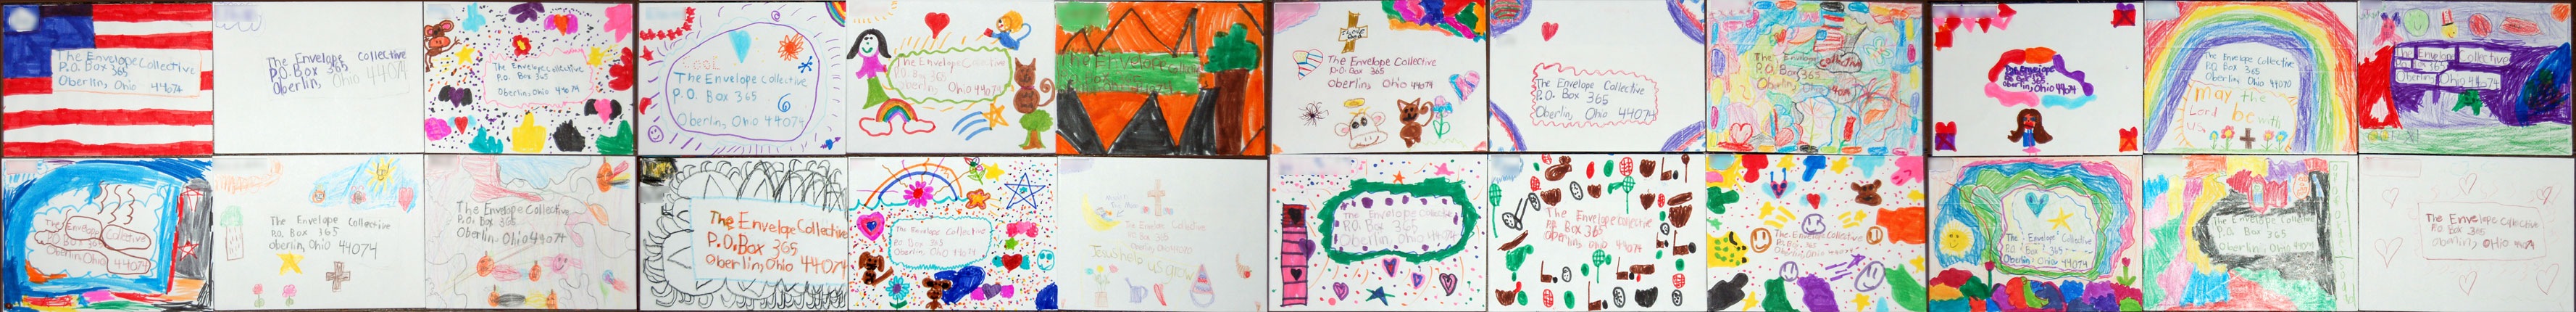 The Envelope Collective
P.O. Box 365
Oberlin, Ohio 44074
The Envelope Collective
P.O. Box 365
Oberlin, Ohio 44074
The Envelope Collective
P.O. Box 365
Oberlin, Ohio 44074
The Envelope Collective
P.O. Box 365
Oberlin, Ohio 44074
The Envelope Collective
P.O. Box 365
Oberlin, Ohio 44074
The Envelope Collective
The Envelope Collective
P.O. Box 365
Oberlin, Ohio 44074
The Envelope Collective
P.O. Box 365
Oberlin, Ohio 44074
The Envelope Collective
P.O. Box 365
Oberlin, Ohio
The Envelope
Oberlin, Ohio 44074
The Envelope Collective
P.O. Box 365
Oberlin, Ohio 44070
may the
Lord be with
us
The Envelope Collective
Oberlin, Ohio 44074
The Envelope Collective
P.O. Box 365
Oberlin, Ohio 44074
The Envelope Collective
P.O. Box 365
Oberlin, Ohio 44074
The Envelope Collective
P.O. Box 365
Oberlin, Ohio 44074
The Envelope Collective
P.O. Box 365
Oberlin, Ohio 44074
The Envelope Collective
P.O. Box 365
Oberlin, Ohio 44074
The Envelope Collective
help us grow
The Envelope Collective
P.O. Box 365
Oberlin, Ohio 44074
The Envelope Collective
P.O. Box 365
Oberlin, Ohio 44074
The Envelope Collective
P.O. Box 365
Oberlin, Ohio 44074
The Envelope Collective
P.O. Box 365
Oberlin, Ohio 44074
The Envelope Collective
P.O. Box 365
Oberlin, Ohio 44074
The Envelope Collective
P.O. Box 365
Oberlin, Ohio 44074